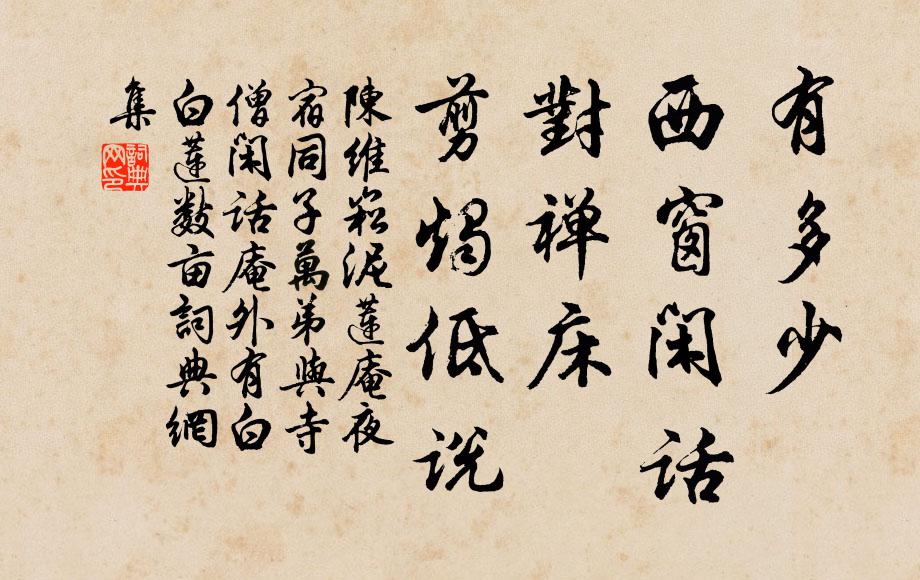 有多少
西窗閑話
對禅床
剪燭低说
陳維崧泥蓮庵夜
宿同子萬弟與寺
僧閑話庵外有白
白蓮數亩詞典網
集
詞典
网印